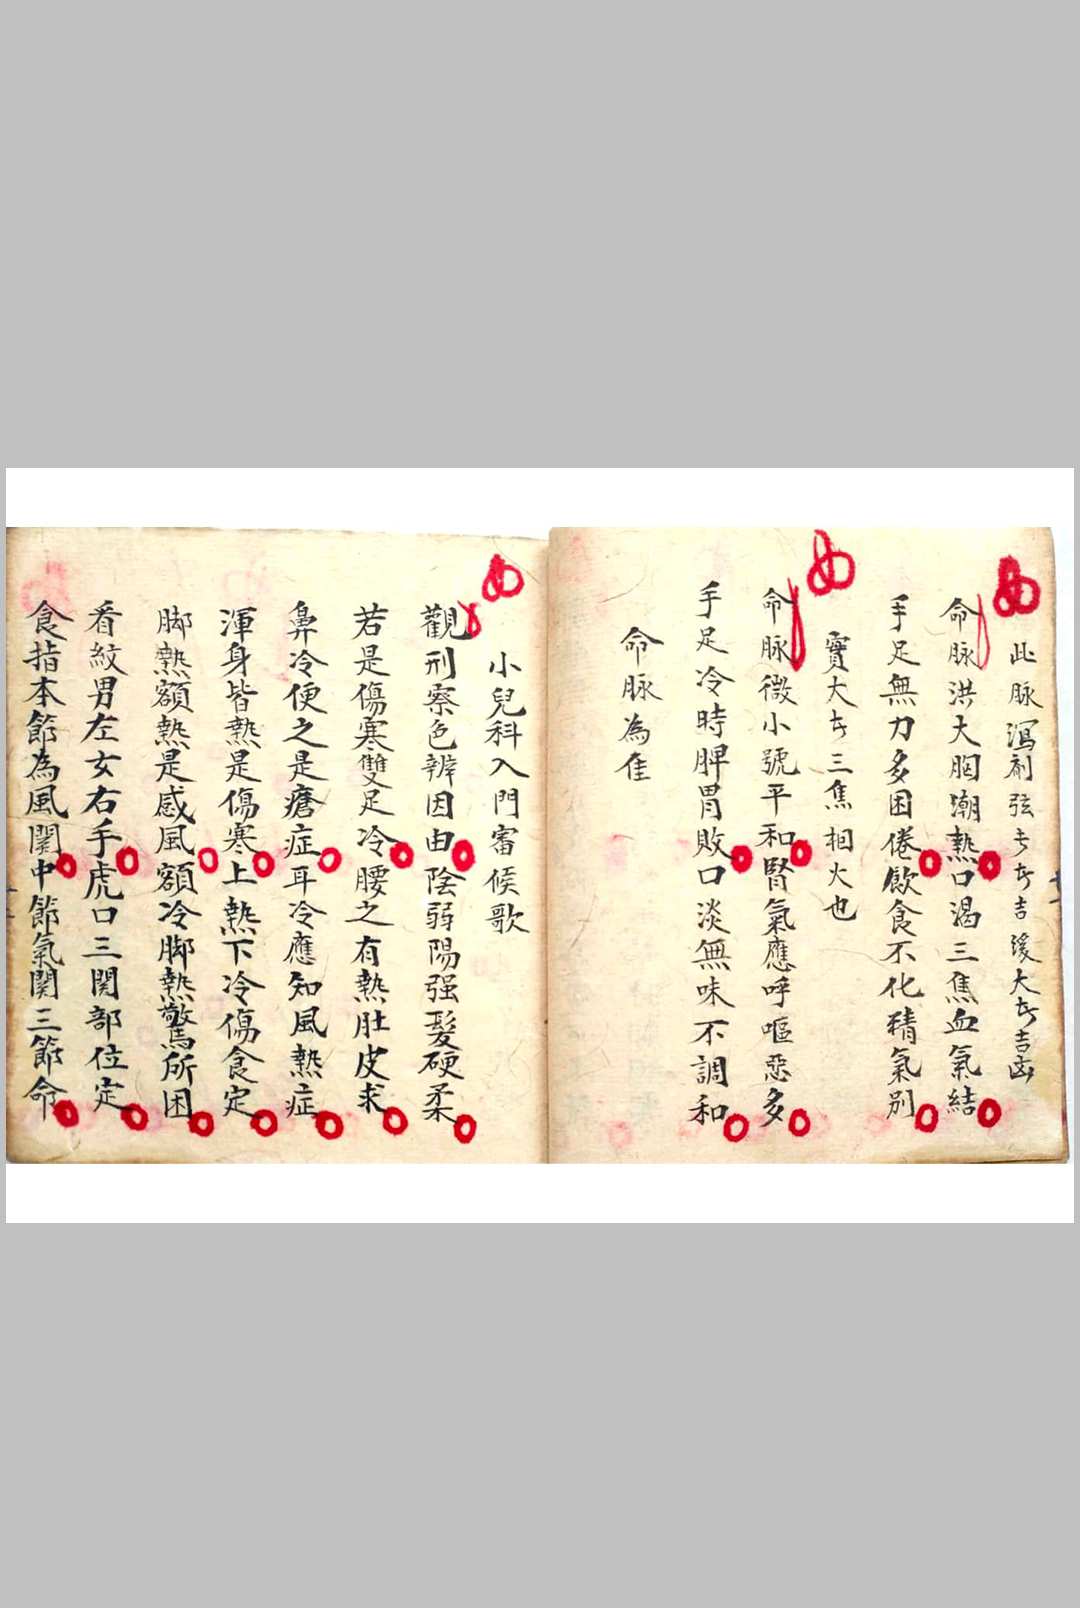 此脉瀉剤弦
命脉洪大胸潮熱口渴三焦血氣結
手足無力多困倦飲食不化精氣别
實大 三焦相火也
命脉微小號平和腎氣應呼嘔惡多
手足冷時脾胃敗口淡無味不調和
命脉為隹
小兒科入門審候歌
觀刑察色辨因由陰弱陽强髮硬柔
若是傷寒雙足冷腰之有熱肚皮求
鼻冷便之是瘡症耳冷應知風熱症
渾身皆熱是傷寒上熱下冷傷食定
脚熱額熱是感風額冷脚熱驚所困
看紋男左女右手虎口三関部位定
食指本節為風関中節氣関三節命